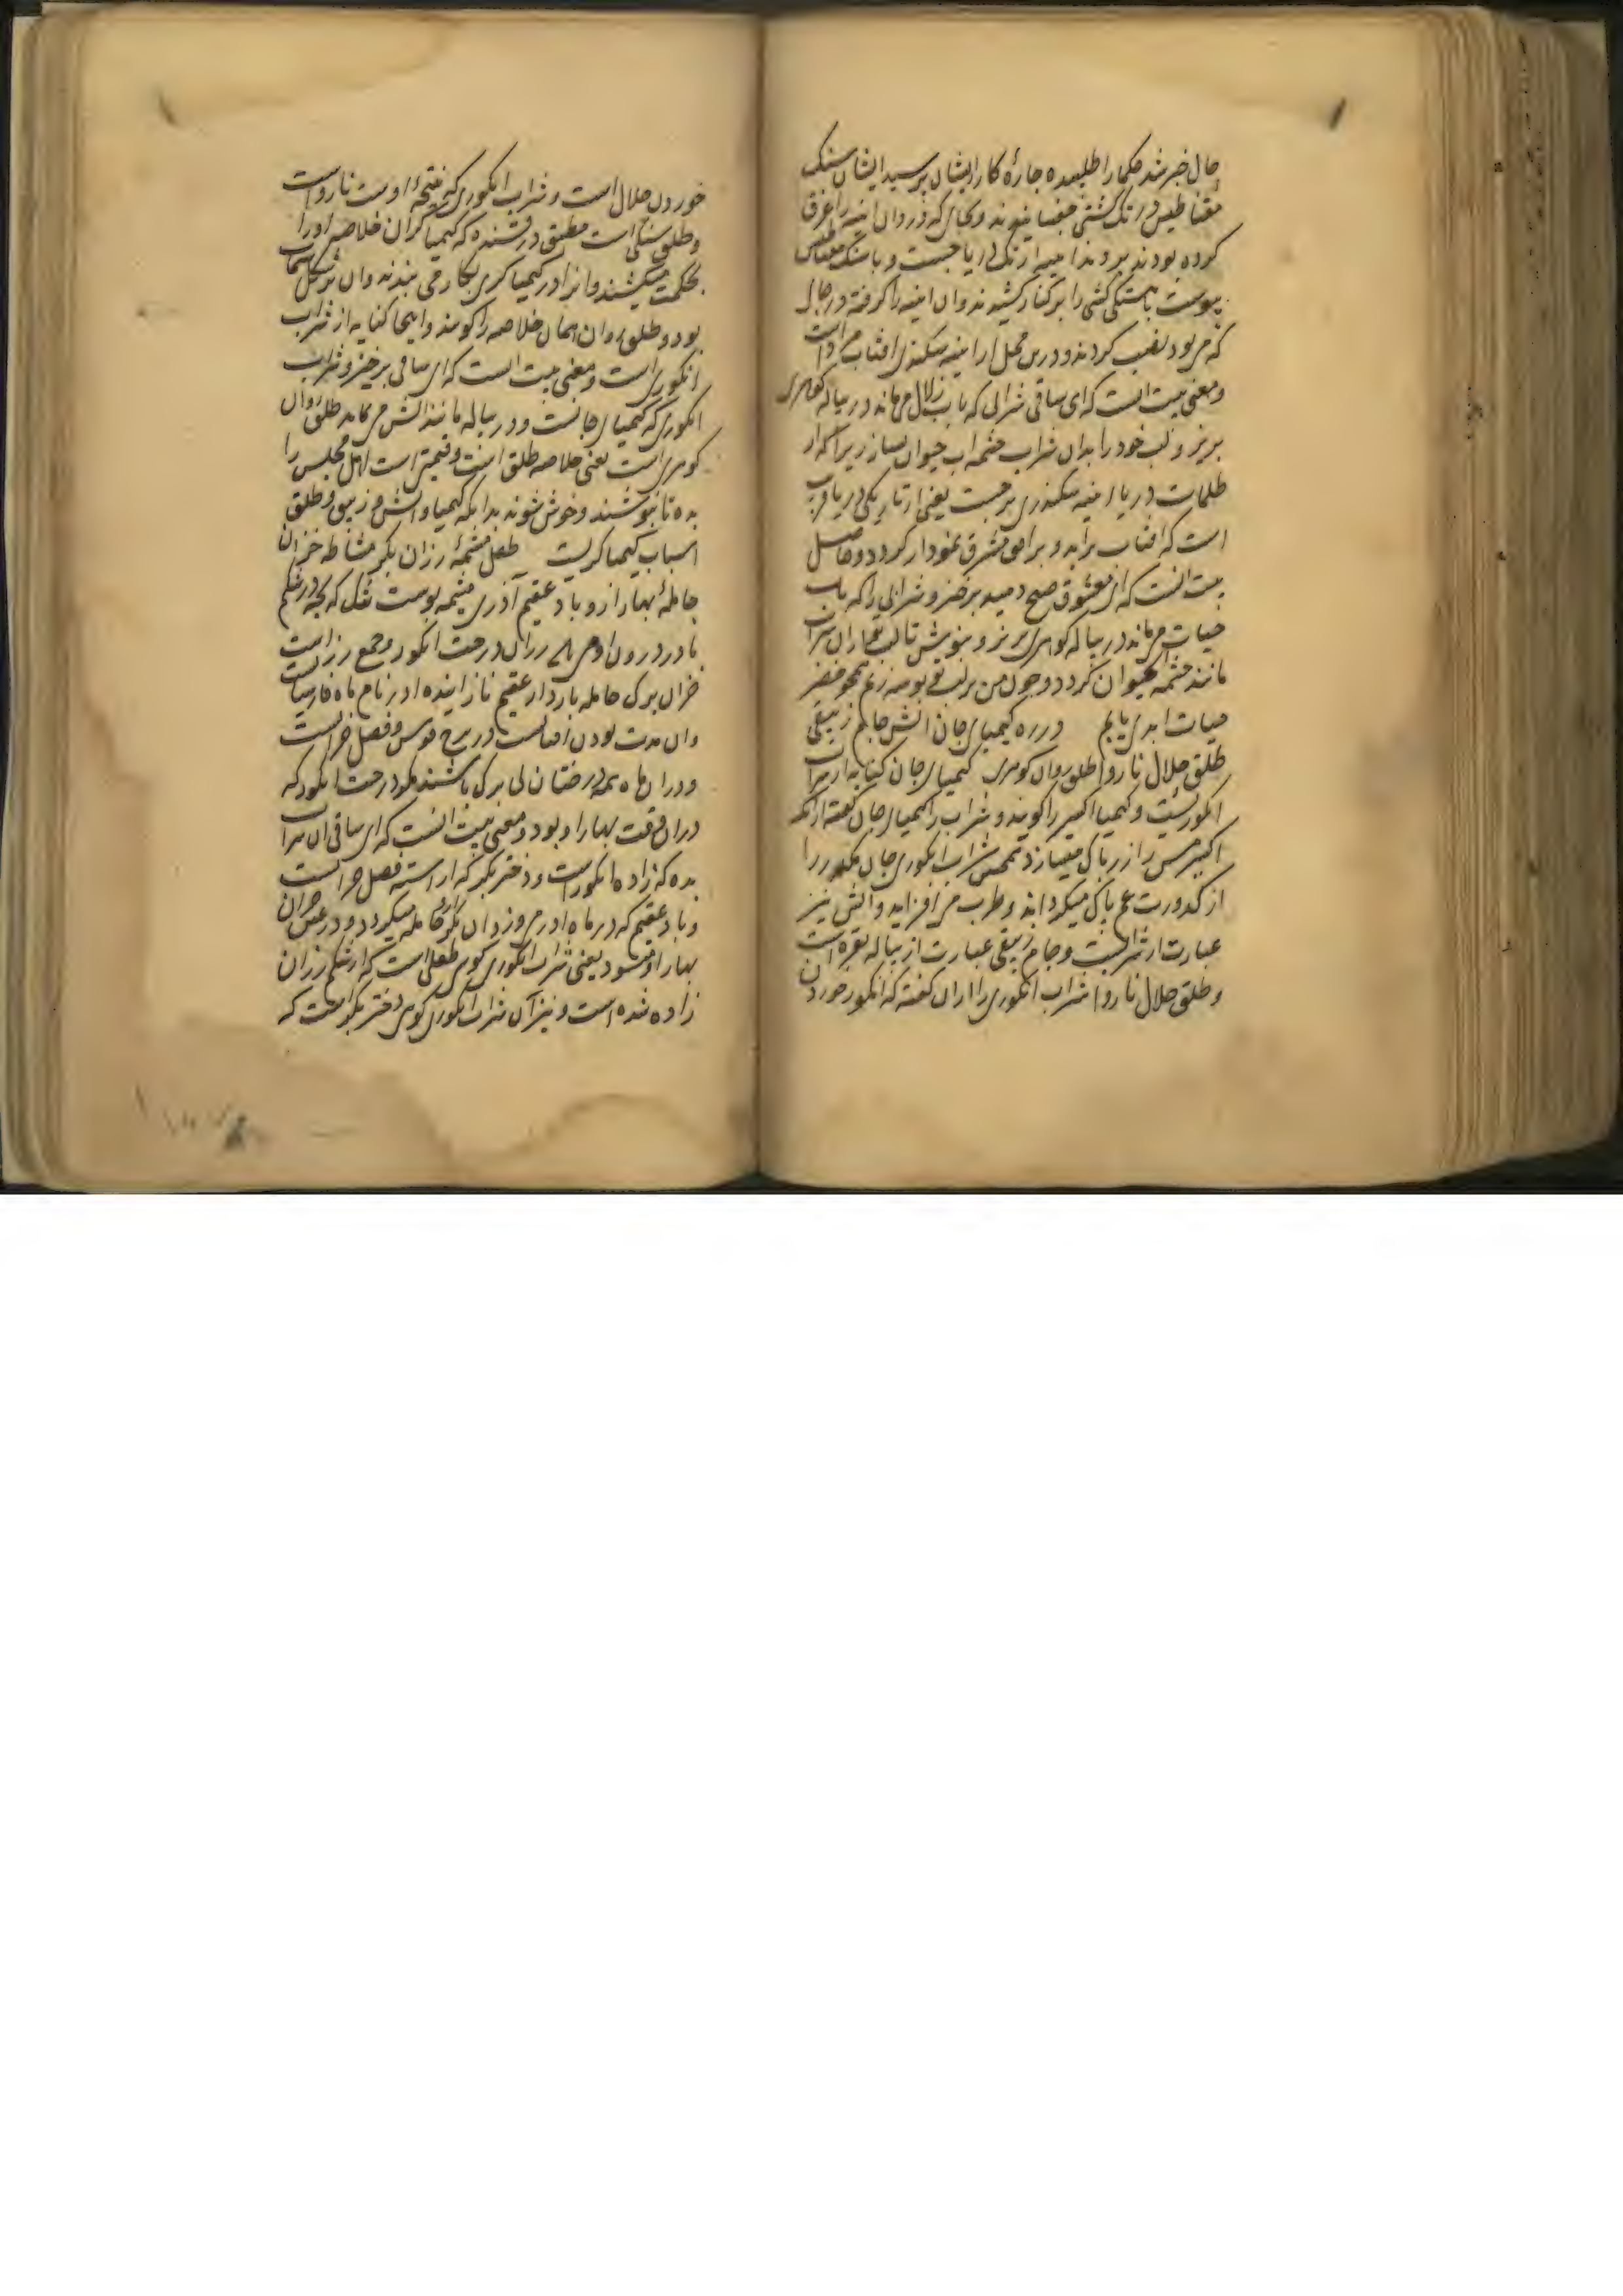 حال خبر شد حکما را طلبیده چارهٔ کار ایشان پرسید ایشان سنک
مقناطیس در تک کشتی و بجای که دران اینه را غرق
کرده بودند بردند اینه از تک دریا جست و با سنک مقناطیس
پیوست باهستکی کشتی را برکنار کشیدند وان اینه را کرفته در حال
که می بود نصب کردند و درین محل از اینه سکندری افتاب مراد است
و معنی بیت انست که ای ساقی شرابی که باب زلال می ماند در پیاله کوهری
بریز و لب خود را بدان شراب چشمه اب حیوان بساز زیرا که از
ظلمات دریا اینه سکندری برجست یعنی از تاریکی دریا قریب
است که افتاب براید و بر افق مشرق نمودار کردد و حاصل
بیت انست که ای معشوق صبح دمید برخیز و شرابی را که باب
حیات می ماند در پیاله کوهری بریز و بنوش تا لب تو ازان شراب
مانند چشمه حیوان کردد و چون من بر لب تو بوسه زنم همچو خضر
حیات ابدی یابم در ره کیمیای جان اتش جام زیبقی
طلق حلال ناروا طلق روان کوهری کیمیای جان کنایه از شراب
انکوریست و کیمیا اکسیر را کویند و شراب را کیمیای جان کفته ازانکه
اکسیر مس را زر پاک میسازد همچنین شراب انکوری جان مکدر را
از کدورت غم پاک میکرداند و طرب می افزاید و اتش نیز
عبارت از شرابست و جام زیبقی عبارت از پیاله نقره است
و طلق حلال ناروا شراب انکوری را ازان کفته که انکور خوردن
خوردن حلال است و شراب انکوری که نتیجهٔ اوست نارواست
و طلق سنکی است مطبق درخشنده که کیمیا کران خلاصه او را
بحکمت میکشند وانرا در کیمیا کری بکار می بندند وان بر شکل سیماب
بود و طلق روان همان خلاصه را کویند و اینجا کنایه از شراب
انکوری است و معنی بیت است که ای ساقی برخیز و شراب
انکوری که کیمیای جانست و در پیاله مانند اتش می نماید طلق روان
کوهری است یعنی خلاصه طلق است و قیمتی است اهل مجلس را
بده تا بنوشند و خوش شوند بدانکه کیمیا و اتش و زیبق و طلق
اسباب کیمیا کریست طفل مشیمهٔ رزان بکر مشاطه خزان
حاملهٔ بهار ازو باد عقیم آذری مشیمه پوست تنک که بچه در شکم
مادر درون او می باشد رزان درخت انکور و جمع رز است
خزان برک حامله باردار عقیم نازاینده اذر نام ماه فارسیانست
وان مدت بودن افتابست در برج قوس و فصل خزانست
و دران ماه همه درختان بی برک باشند مکر درخت انکور که
دران وقت بهار او بود و معنی بیت انست که ای ساقی ان شراب
بده که زاده انکور است و دختر بکر که اراسته فصل خزانست
و باد عقیم که در ماه اذر می وزد ازان بکر حامله میکردد و در عین خزان
بهار او میشود یعنی شراب انکوری کوی طفلی است که از شکم رزان
زاده شده است و نیز آن شراب انکوری کوی دختر بکر است که